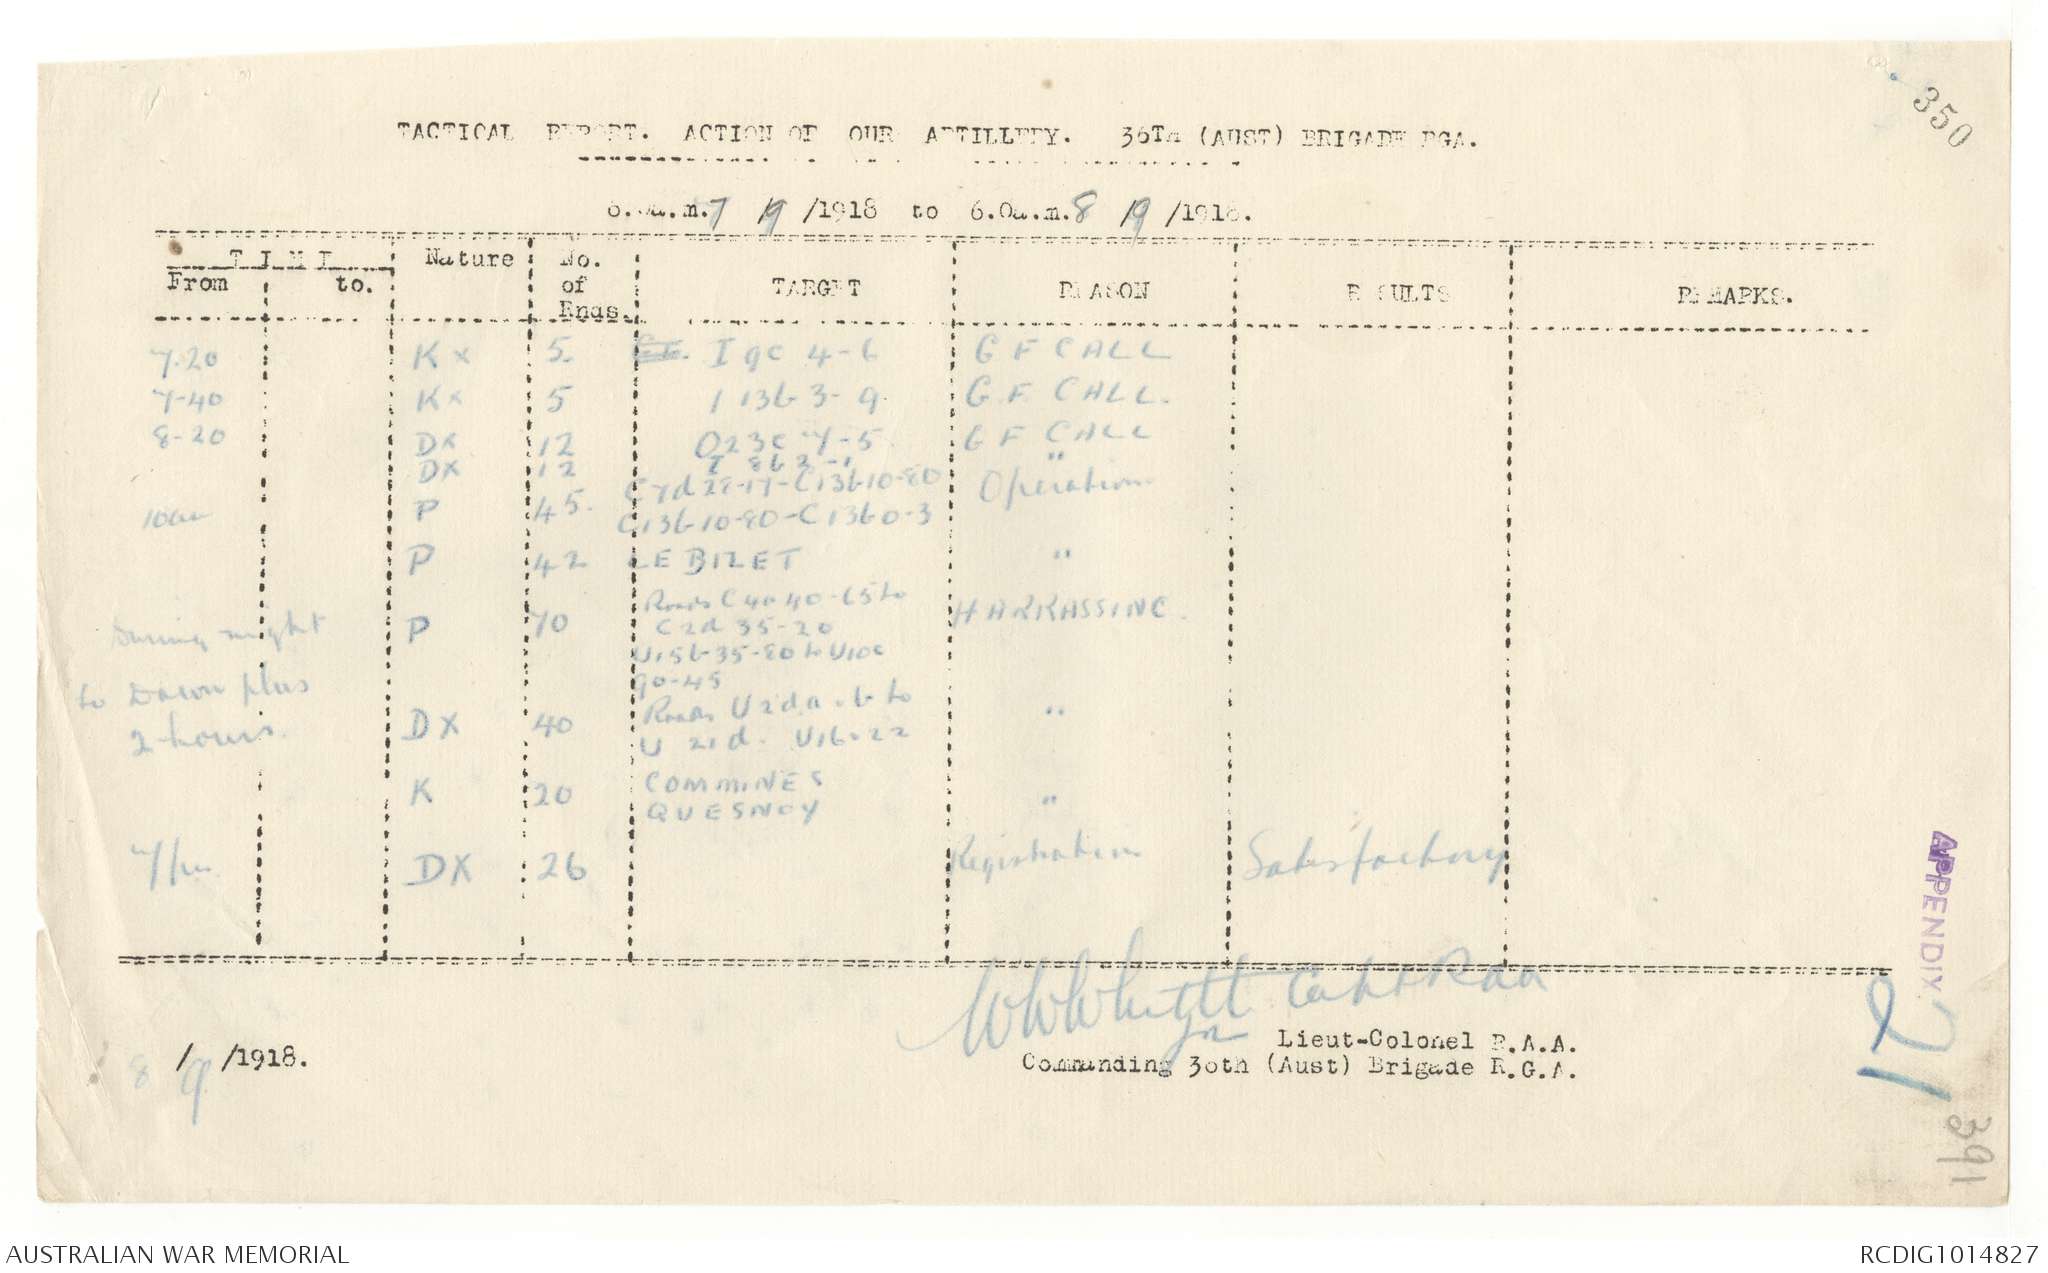 350
TACTICAL REPORT. ACTION OF OUR ARTILLERY. 36Th (AUST) BRIGADE RGA.
6.0a.m. 7/9/1918 to 6.0a.m. 8/9/1918.
TIME Nature No. of Rnds. TARGET REASON RESULTS REMARKS.
From to.
7.20 Kx 5. I 9c 4-6 G F CALL
7-40 Kx 5 I 13b 3-9 G.F. CALL.
8-20 DX 12 O23c 7-5 G F CALL
DX 12 I 8b 3-1 "
C7d 28-17-C13b10-80 Operation
10am P 45. C13b10-80-C13b0-3
P 42 LE BIZET "
Roads C4a 40-65 to HARRASSING.
During night P 70 C2d 35-20
U15b-35-80 to U10c
to Dawn plus 90-45
2 hours. DX 40 Roads U2d.a.6 to "
U 21d. U16.22
K 20 COMMINES
QUESNOY "
DX 26 Registration Satisfactory
Capt RAA
Lieut-Colonel R.A.A.
8/9/1918. Commanding 36th (Aust) Brigade R.G.A.
APPENDIX
391
AUSTRALIAN WAR MEMORIAL RCDIG1014827